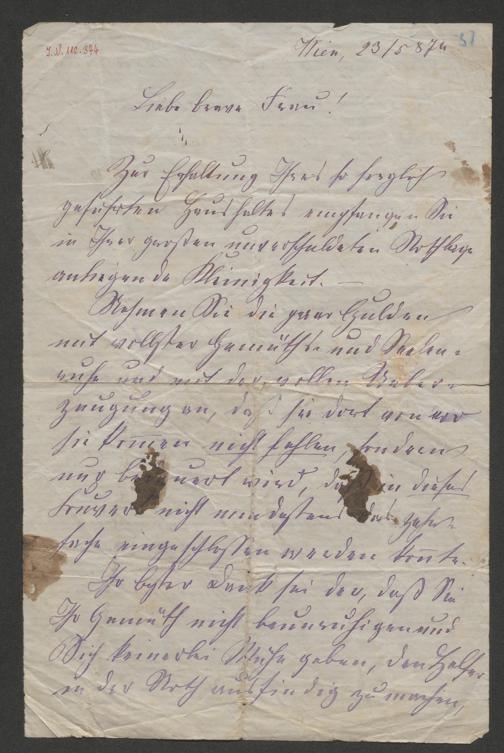 I.N. 110.374
37
Wien, 23/5 87
Liebe brave Frau!
Zur Erhaltung Ihres so sorglich
geführten Haushaltes empfangen Sie
in Ihrer großen unverschuldeten Nothlage
anliegende Kleinigkeit. —
Nehmen Sie die paar Gulden
mit vollster Gemüths- und Seelen-
ruhe und mit der vollen Ueber-
zeugung an, daß sie dort von wo
sie komen nicht fehlen, sondern
nur bedauert wird, daß in dieses
Couvert nicht mindestens das zehn-
fache eingeschlossen werden konte.
Ihr bester Dank sei der, daß Sie
Ihr Gemüth nicht beunruhigen und
Sich keinerlei Mühe geben, den Helfer
in der Noth ausfindig zu machen,